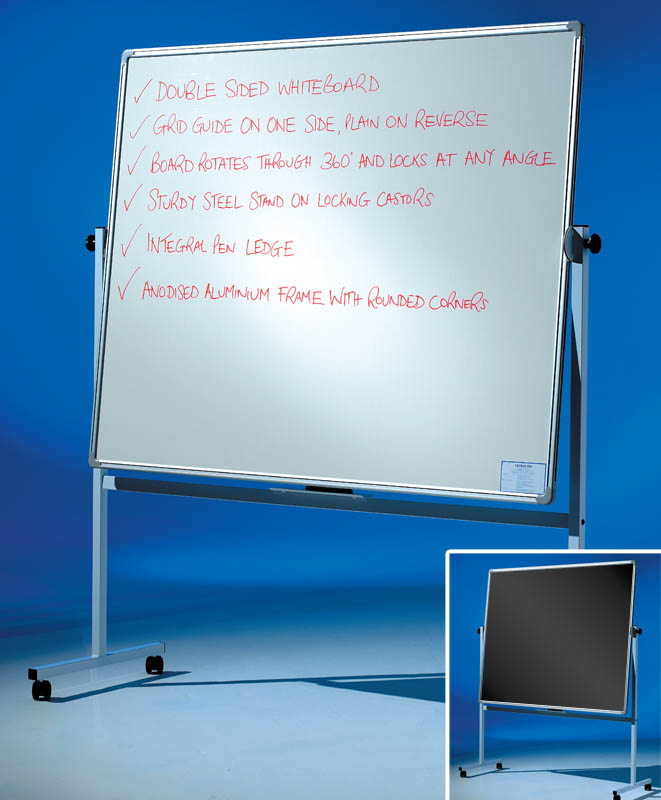 ✓ DOUBLE SIDED WHITEBOARD
✓ GRID GUIDE ON ONE SIDE, PLAIN ON REVERSE
✓ BOARD ROTATES THROUGH 360° AND LOCKS AT ANY ANGLE
✓ STURDY STEEL STAND ON LOCKING CASTORS
✓ INTEGRAL PEN LEDGE
✓ ANODISED ALUMINIUM FRAME WITH ROUNDED CORNERS